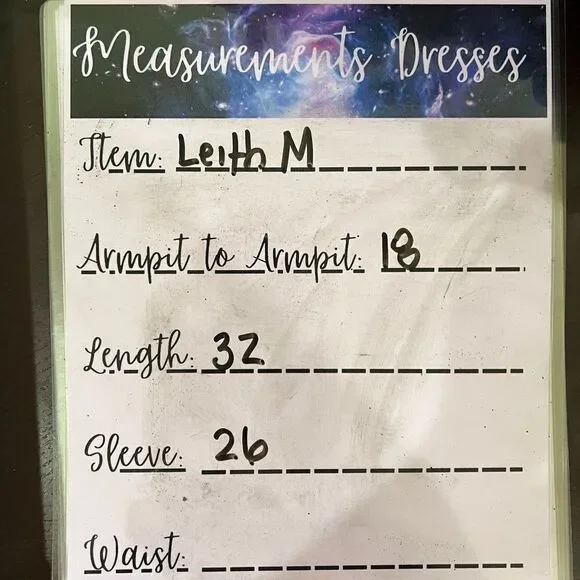 Measurements Dresses
Item: Leith M
Armpit to Armpit: 18
Length: 32
Sleeve: 26
Waist: